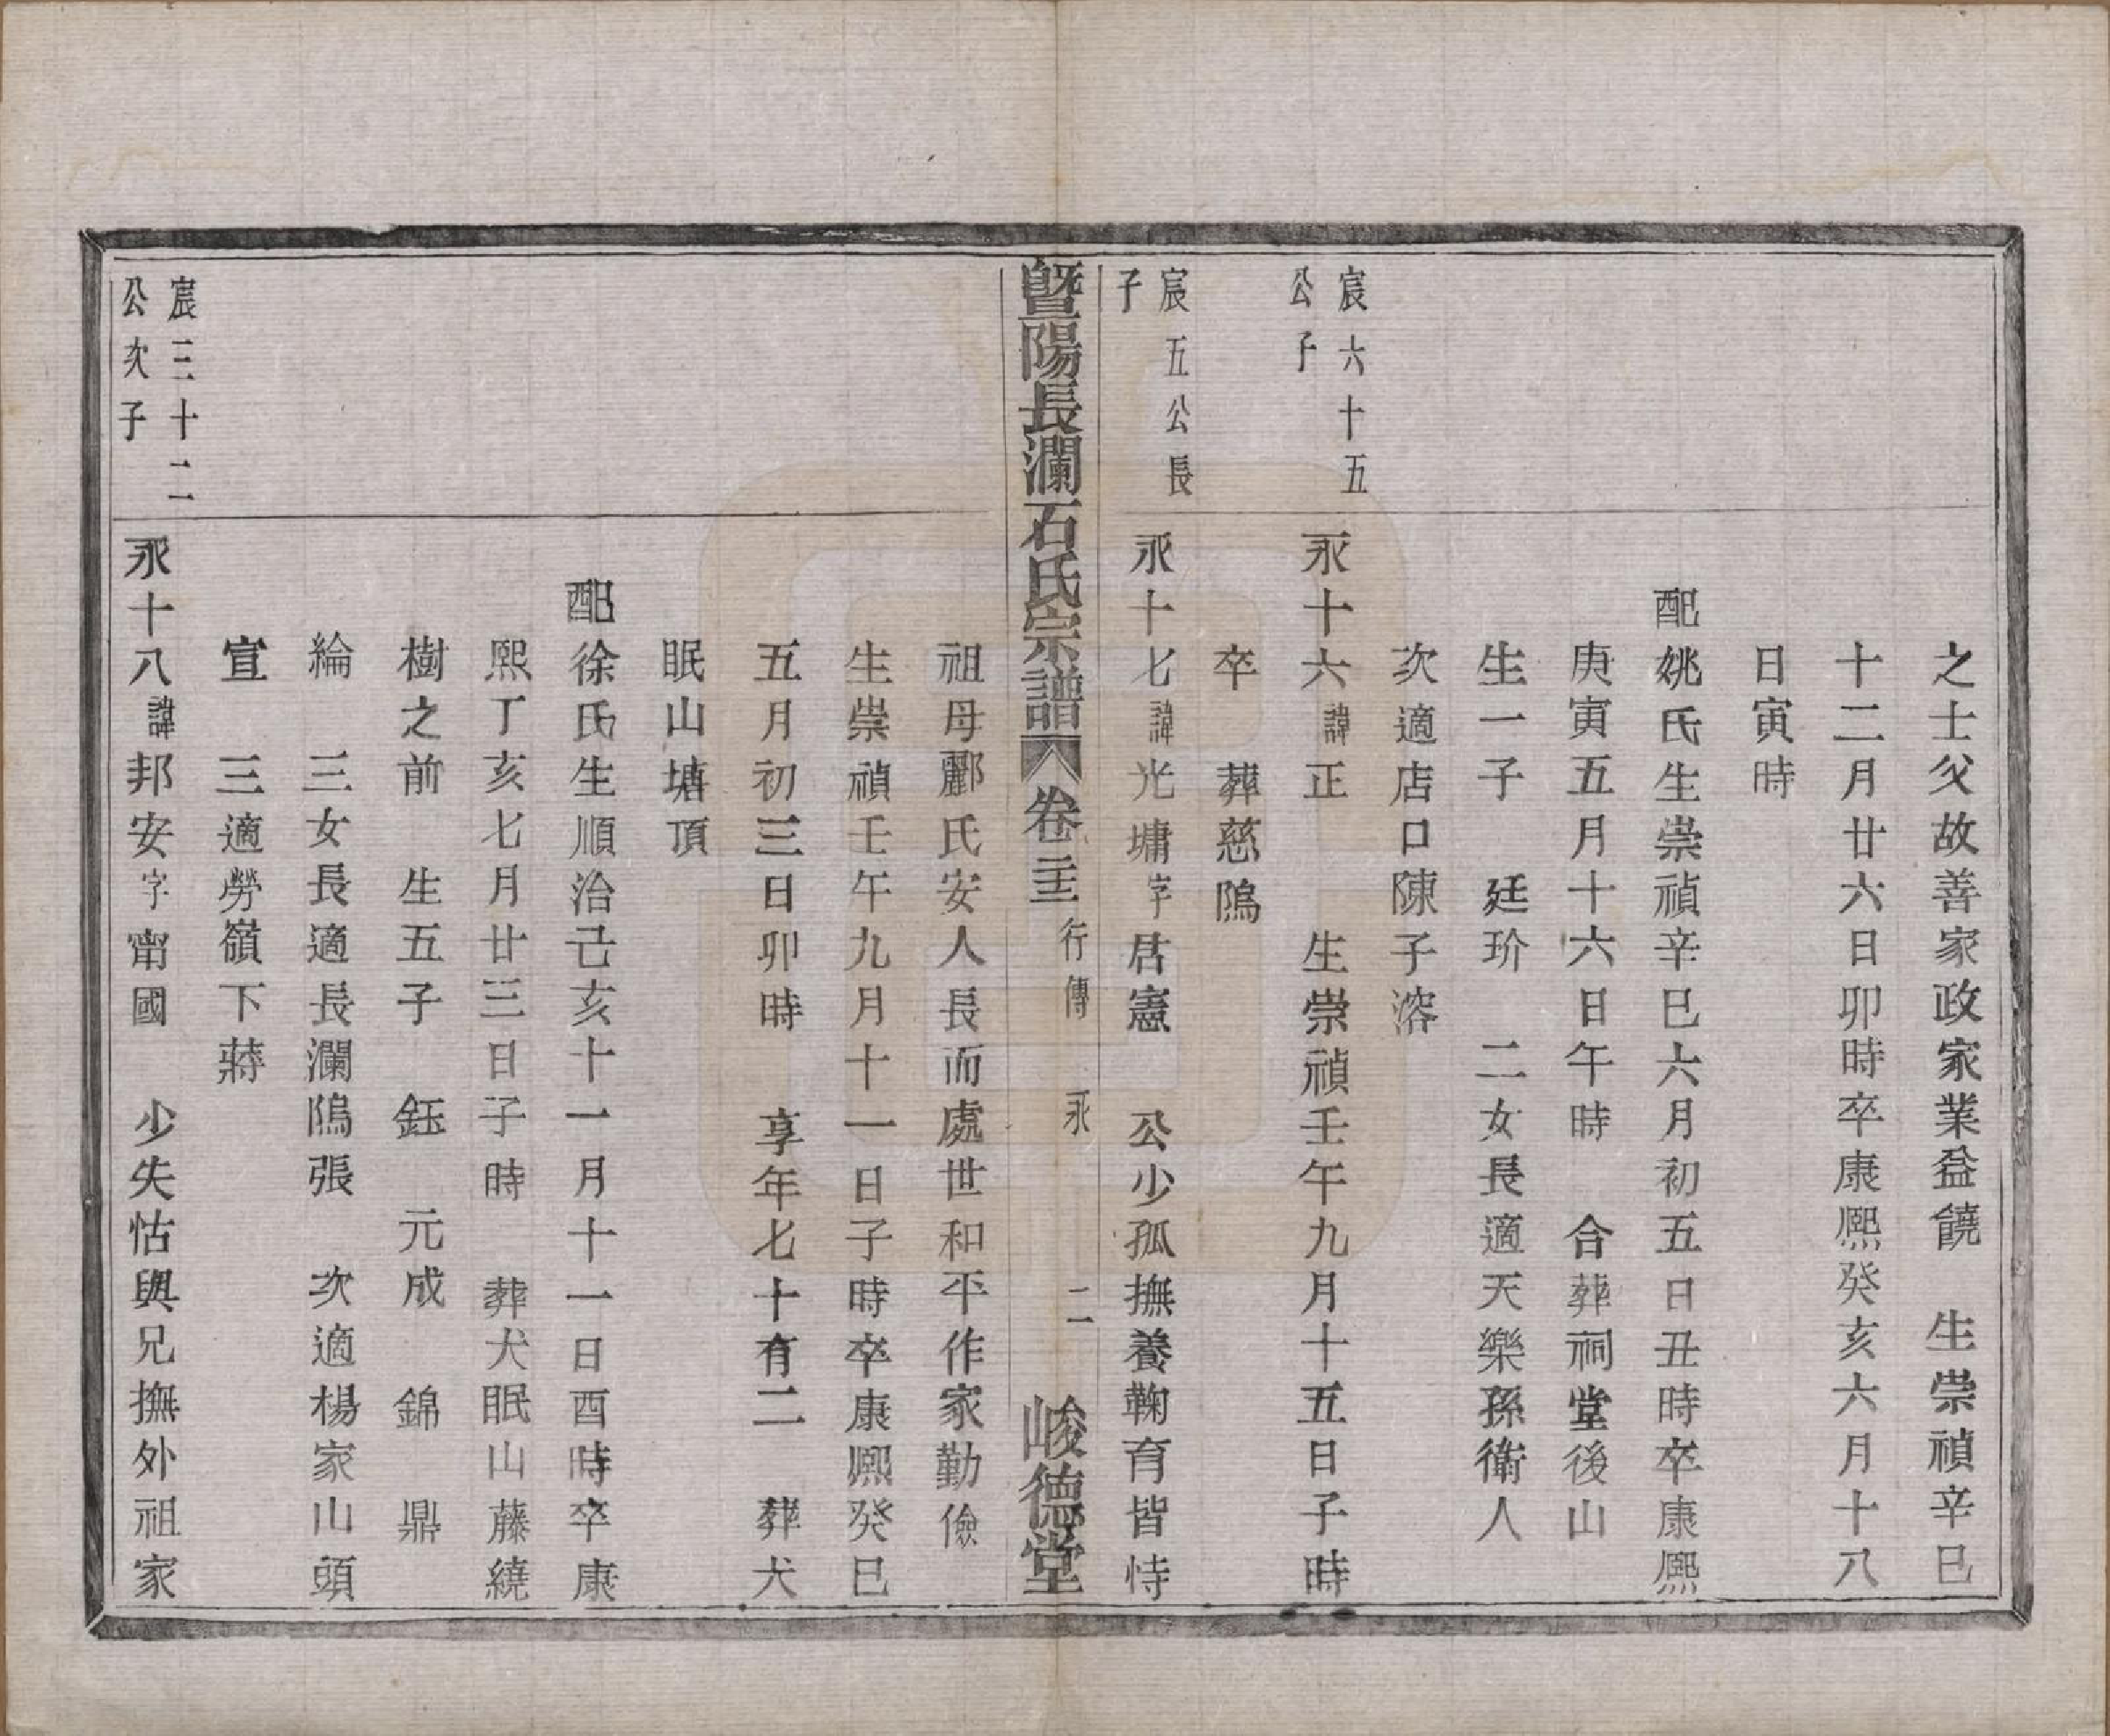 之士父故善家政家業益饒　生崇禎辛巳
十二月廿六日卯時卒康熙癸亥六月十八
日寅時
配姚氏生崇禎辛巳六月初五日丑時卒康熙
庚寅五月十六日午時　合葬祠堂後山
生一子　廷玠　二女長適天樂孫衛人
次適店口陳子溶
宸六十五
公子
永十六諱正　　生崇禎壬午九月十五日子時
卒　葬慈隝
宸五公長
子
永十七諱光墉字居憲　公少孤撫養鞠育皆恃
曁陽長瀾石氏宗譜　卷二十三　行傳　永　二　峻德堂
祖母酈氏安人長而處世和平作家勤儉
生崇禎壬午九月十一日子時卒康熙癸巳
五月初三日卯時　享年七十有二　葬犬
眠山塘頂
配徐氏生順治己亥十一月十一日酉時卒康
熙丁亥七月廿三日子時　葬犬眠山藤繞
樹之前　生五子　鈺　元成　錦　鼎
綸　三女長適長瀾隝張　次適楊家山頭
宣　三適勞嶺下蔣
宸三十二
公次子
永十八諱邦安字甯國　少失怙與兄撫外祖家